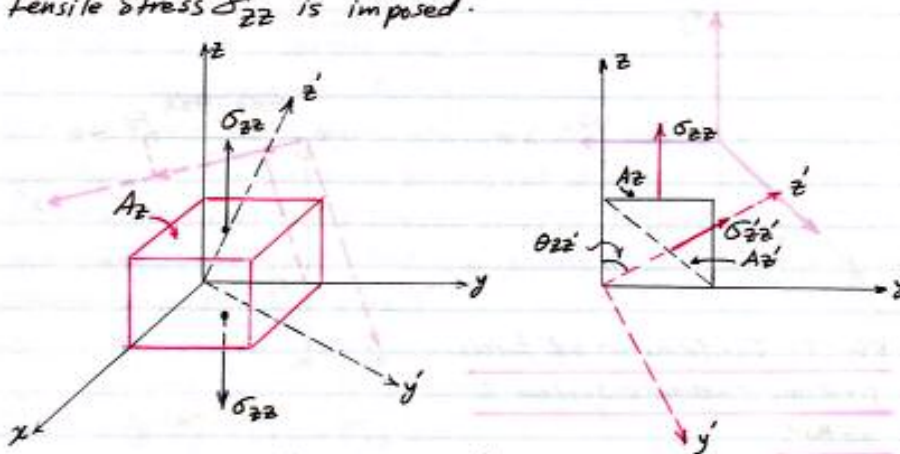 tensile stress σzz is imposed.
z
z'
σzz
Az
y
y'
σzz
x
z
σzz
Az
z'
σz'z'
θzz'
Az'
y
y'